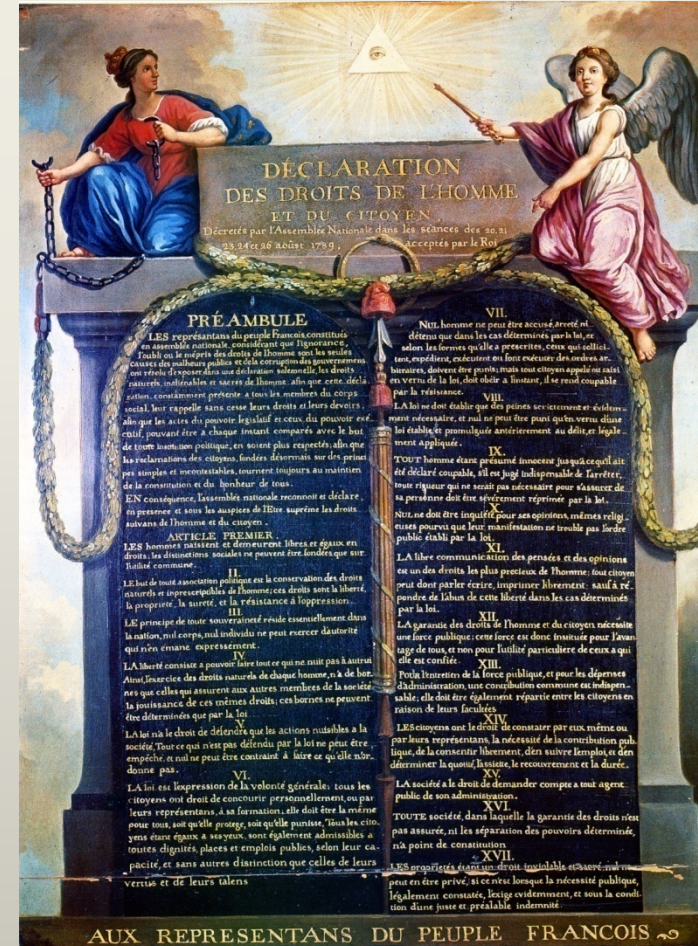 DÉCLARATION
DES DROITS DE L'HOMME
ET DU CITOYEN,
Décretés par l'Assemblée Nationale dans les séances des 20, 21
23, 24 et 26 août 1789, acceptés par le Roi
PRÉAMBULE
LES représentans du peuple François, constitués
en assemblée nationale, considérant que l'ignorance,
l'oubli ou le mépris des droits de l'homme sont les seules
causes des malheurs publics et de la corruption des gouvernemens
ont résolu d'exposer dans une déclaration solemnelle, les droits
naturels, inaliénables et sacrés de l'homme: afin que cette décla
ration, constamment présente a tous les membres du corps
social, leur rappelle sans cesse leurs droits et leurs devoirs;
afin que les actes du pouvoir législatif et ceux du pouvoir exé
cutif, pouvant être a chaque instant comparés avec le but
de toute institution politique, en soient plus respectés; afin que
les réclamations des citoyens, fondées désormais sur des princi
pes simples et incontestables, tournent toujours au maintien
de la constitution et du bonheur de tous.
EN conséquence, l'assemblée nationale reconnoit et déclare,
en presence et sous les auspices de l'Etre suprême les droits
suivans de l'homme et du citoyen.
ARTICLE PREMIER.
LES hommes naissent et demeurent libres et égaux en
droits; les distinctions sociales ne peuvent être fondées que sur
l'utilité commune.
II.
LE but de toute association politique est la conservation des droits
naturels et imprescriptibles de l'homme; ces droits sont la liberté,
la propriété, la sureté, et la résistance à l'oppression.
III.
LE principe de toute souveraineté réside essentiellement dans
la nation, nul corps, nul individu ne peut exercer d'autorité
qui n'en émane expressement.
IV.
LA liberté consiste a pouvoir faire tout ce qui ne nuit pas à autrui
Ainsi, l'exercice des droits naturels de chaque homme, n'a de bor
nes que celles qui assurent aux autres membres de la société
la jouissance de ces mêmes droits; ces bornes ne peuvent
être déterminées que par la loi
V.
LA loi n'a le droit de défendre que les actions nuisibles a la
société. Tout ce qui n'est pas défendu par la loi ne peut être
empêché, et nul ne peut être contraint à faire ce qu'elle n'or
donne pas.
VI.
LA loi est l'expression de la volonté générale; tous les
citoyens ont droit de concourir personnellement, ou par
leurs représentans, à sa formation; elle doit être la même
pour tous, soit qu'elle protege, soit qu'elle punisse. Tous les cito
yens étant égaux a ses yeux, sont également admissibles à
toutes dignités, places et emplois publics, selon leur ca
pacité, et sans autres distinction que celles de leurs
vertus et de leurs talens
VII.
NUL homme ne peut être accusé, arreté ni
détenu que dans les cas déterminés par la loi, et
selon les formes qu'elle a prescrites, ceux qui sollici-
tent, expédient, exécutent ou font exécuter des ordres ar-
bitraires, doivent être punis; mais tout citoyen appelé ou saisi
en vertu de la loi, doit obéir a l'instant, il se rend coupable
par la résistance.
VIII.
LA loi ne doit établir que des peines strictement et évidem-
ment nécessaire, et nul ne peut être puni qu'en vertu d'une
loi établie, et promulguée antérierement au délit, et légale-
ment appliquée.
IX.
TOUT homme étant présumé innocent jusqu'à ce qu'il ait
été déclaré coupable, s'il est jugé indispensable de l'arrêter,
toute rigueur qui ne serait pas nécessaire pour s'assurer de
sa personne doit être sévèrement réprimée par la loi.
X.
NUL ne doit être inquiété pour ses opinions, mêmes religi-
euses pourvu que leur manifestation ne trouble pas l'ordre
public établi par la loi.
XI.
LA libre communication des pensées et des opinions
est un des droits les plus precieux de l'homme; tout citoyen
peut dont parler écrire, imprimer librement: sauf à ré-
pondre de l'abus de cette liberté dans les cas déterminés
par la loi.
XII.
LA garantie des droits de l'homme et du citoyen nécessite
une force publique; cette force est donc instituée pour l'avan
tage de tous, et non pour l'utilité particuliere de ceux a qui
elle est confiée.
XIII.
POUR l'entretien de la force publique, et pour les dépenses
d'administration, une contribution commune est indispen-
sable; elle doit être également répartie entre les citoyens en
raison de leurs facultées
XIV.
LES citoyens ont le droit de constater par eux même ou
par leurs représentans, la nécessité de la contribution pub-
lique, de la consentir librement, d'en suivre l'emploi, et d'en
déterminer la quotité, l'assiette, le recouvrement et la durée.
XV.
LA société a le droit de demander compte a tout agent
public de son administration.
XVI.
TOUTE société, dans laquelle la garantie des droits n'est
pas assurée, ni les séparation des pouvoirs déterminée,
n'a point de constitution
XVII.
LES proprietés étant un droit inviolable et sacré, nul ne
peut en être privé, si ce n'est lorsque la nécessité publique,
légalement constatée, l'exige evidemment, et sous la condi-
tion d'une juste et préalable indemnité.
AUX REPRESENTANS DU PEUPLE FRANCOIS